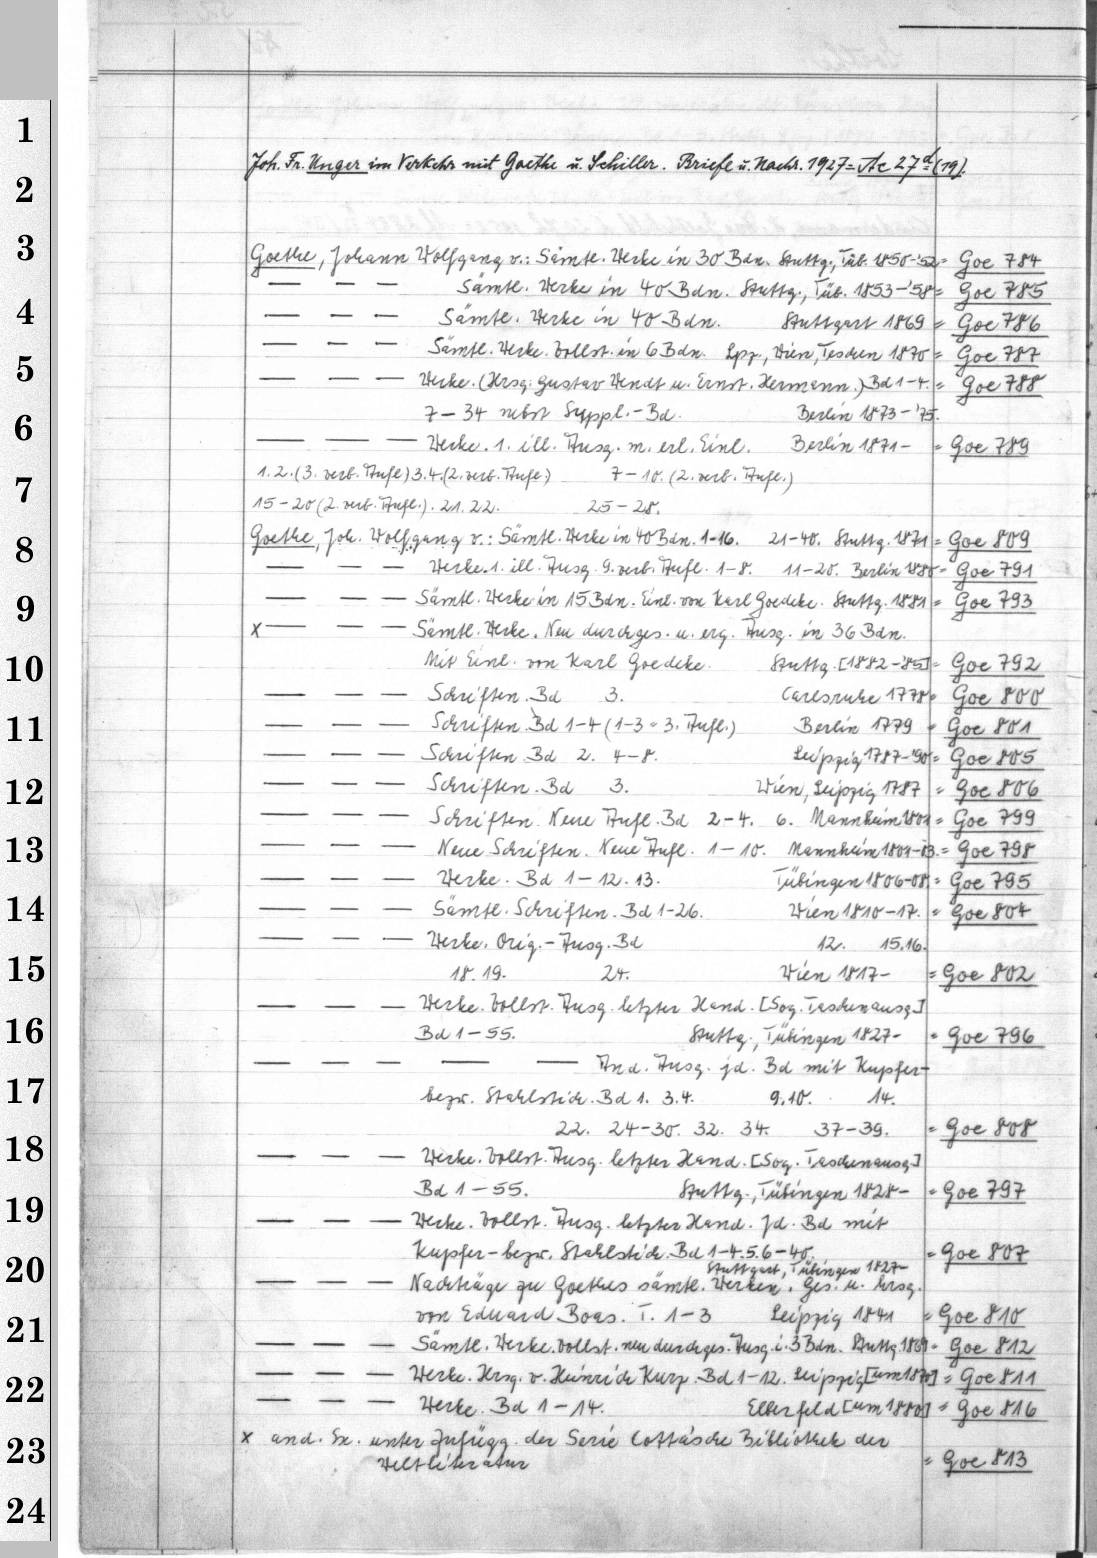 1
2
3
4
5
6
7
8
9
10
11
12
13
14
15
16
17
18
19
20
21
22
23
24
Joh. Fr. Unger im Verkehr mit Goethe u. Schiller. Briefe u. Nachr. 1927 = Ac 27d (19).
Goethe, Johann Wolfgang v.: Sämtl. Werke in 30 Bdn. Stuttg., Tüb. 1850-'52 = Goe 784
— — — Sämtl. Werke in 40 Bdn. Stuttg., Tüb. 1853-'58 = Goe 785
— — — Sämtl. Werke in 40 Bdn. Stuttgart 1869 = Goe 786
— — — Sämtl. Werke. Vollst. in 6 Bdn. Lpz., Wien, Teschen 1870 = Goe 787
— — — Werke. (Hrsg: Gustav Wendt u. Ernst. Hermann.) Bd 1-4. = Goe 788
7-34 nebst Suppl.-Bd. Berlin 1873-'75.
— — — Werke. 1. ill. Ausg. m. erl. Einl. Berlin 1871- = Goe 789
1. 2. (3. verb. Aufl) 3. 4. (2. verb. Aufl.) 7-10. (2. verb. Aufl.)
15-20 (2. verb. Aufl.). 21. 22. 25-28.
Goethe, Joh. Wolfgang v.: Sämtl. Werke in 40 Bdn. 1-16. 21-40. Stuttg. 1871 = Goe 809
— — — Werke. 1. ill. Ausg. 9. verb. Aufl. 1-8. 11-20. Berlin 1880 = Goe 791
— — — Sämtl. Werke in 15 Bdn. Einl. von Karl Goedeke. Stuttg. 1881 = Goe 793
x — — — Sämtl. Werke. Neu durchges. u. erg. Ausg. in 36 Bdn.
Mit Einl. von Karl Goedeke. Stuttg. [1882-'85] = Goe 792
— — — Schriften. Bd 3. Carlsruhe 1778 = Goe 800
— — — Schriften. Bd 1-4 (1-3 = 3. Aufl.) Berlin 1779 = Goe 801
— — — Schriften. Bd 2. 4-8. Leipzig 1787-'90 = Goe 805
— — — Schriften. Bd 3. Wien, Leipzig 1787 = Goe 806
— — — Schriften. Neue Aufl. Bd 2-4. 6. Mannheim 1801 = Goe 799
— — — Neue Schriften. Neue Aufl. 1-10. Mannheim 1801-03. = Goe 798
— — — Werke. Bd 1-12. 13. Tübingen 1806-08. = Goe 795
— — — Sämtl. Schriften. Bd 1-26. Wien 1810-17. = Goe 804
— — — Werke. Orig.-Ausg. Bd 12. 15.16.
18. 19. 24. Wien 1817- = Goe 802
— — — Werke. Vollst. Ausg. letzter Hand. [Sog. Taschenausg.]
Bd 1-55. Stuttg., Tübingen 1827- = Goe 796
— — — — — And. Ausg. jd. Bd mit Kupfer-
bezw. Stahlstich. Bd 1. 3.4. 9.10. 14.
22. 24-30. 32. 34. 37-39. = Goe 808
— — — Werke. Vollst. Ausg. letzter Hand. [Sog. Taschenausg.]
Bd 1-55. Stuttg., Tübingen 1828- = Goe 797
— — — Werke. Vollst. Ausg. letzter Hand. Jd. Bd mit
Kupfer- bezw. Stahlstich. Bd 1-4.5.6-40. = Goe 807
Stuttgart, Tübingen 1827-
— — — Nachträge zu Goethes sämtl. Werken. Ges. u. hrsg.
von Eduard Boas. T. 1-3 Leipzig 1841 = Goe 810
— — — Sämtl. Werke. Vollst. neu durchges. Ausg. i. 3 Bdn. Stuttg. 1869 = Goe 812
— — — Werke. Hrsg. v. Heinrich Kurz. Bd 1-12. Leipzig [um 1870] = Goe 811
— — — Werke. Bd 1-14. Elberfeld [um 1880] = Goe 816
x and. Ex. unter Zufügg. der Serie Cotta'sche Bibliothek der
Weltliteratur = Goe 813